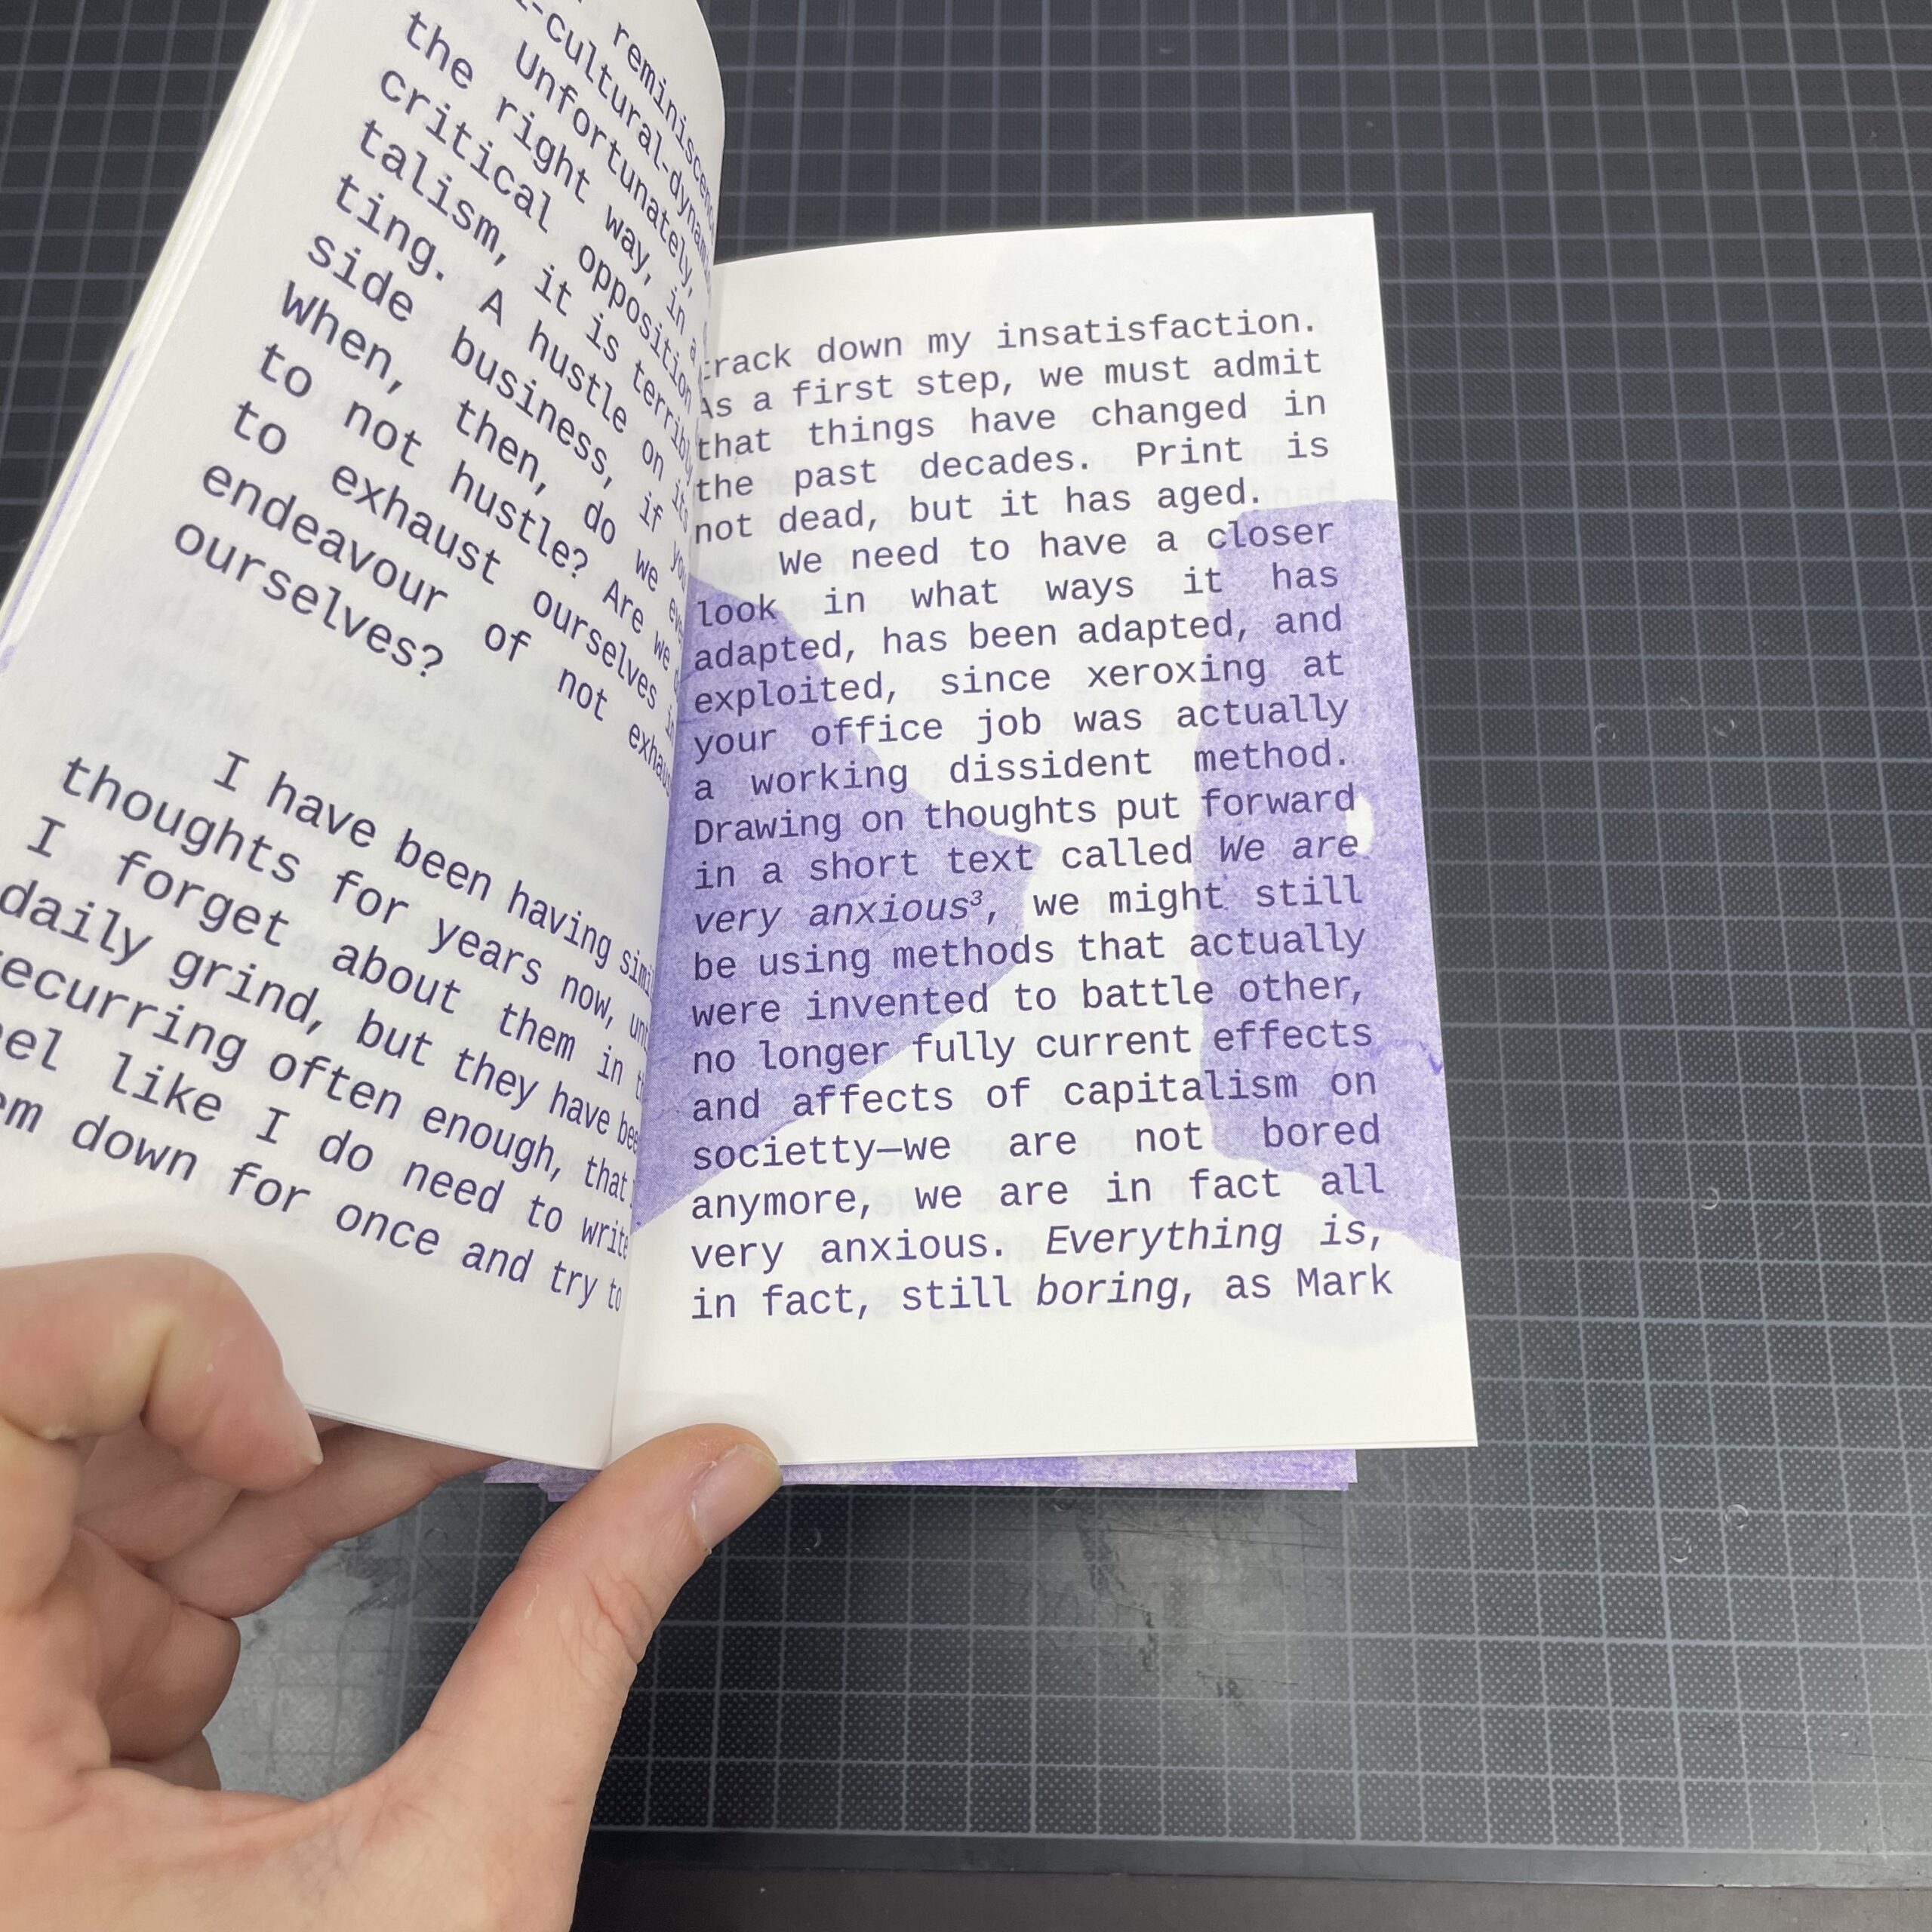 the right way, in a
critical opposition
talism, it is
ting. A hustle on its
side business, if you
When, then, do we
to not hustle? Are we
to exhaust ourselves
endeavour of not
ourselves?
I have been having
thoughts for years now,
I forget about them in
daily grind, but they have
often enough, that
like I do need to write
down for once and try to
down my insatisfaction.
As a first step, we must admit
that things have changed in
the past decades. Print is
not dead, but it has aged.
We need to have a closer
look in what ways it has
adapted, has been adapted, and
exploited, since xeroxing at
your office job was actually
a working dissident method.
Drawing on thoughts put forward
in a short text called We are
very anxious³, we might still
be using methods that actually
were invented to battle other,
no longer fully current effects
and affects of capitalism on
societty—we are not bored
anymore, we are in fact all
very anxious. Everything is,
in fact, still boring, as Mark